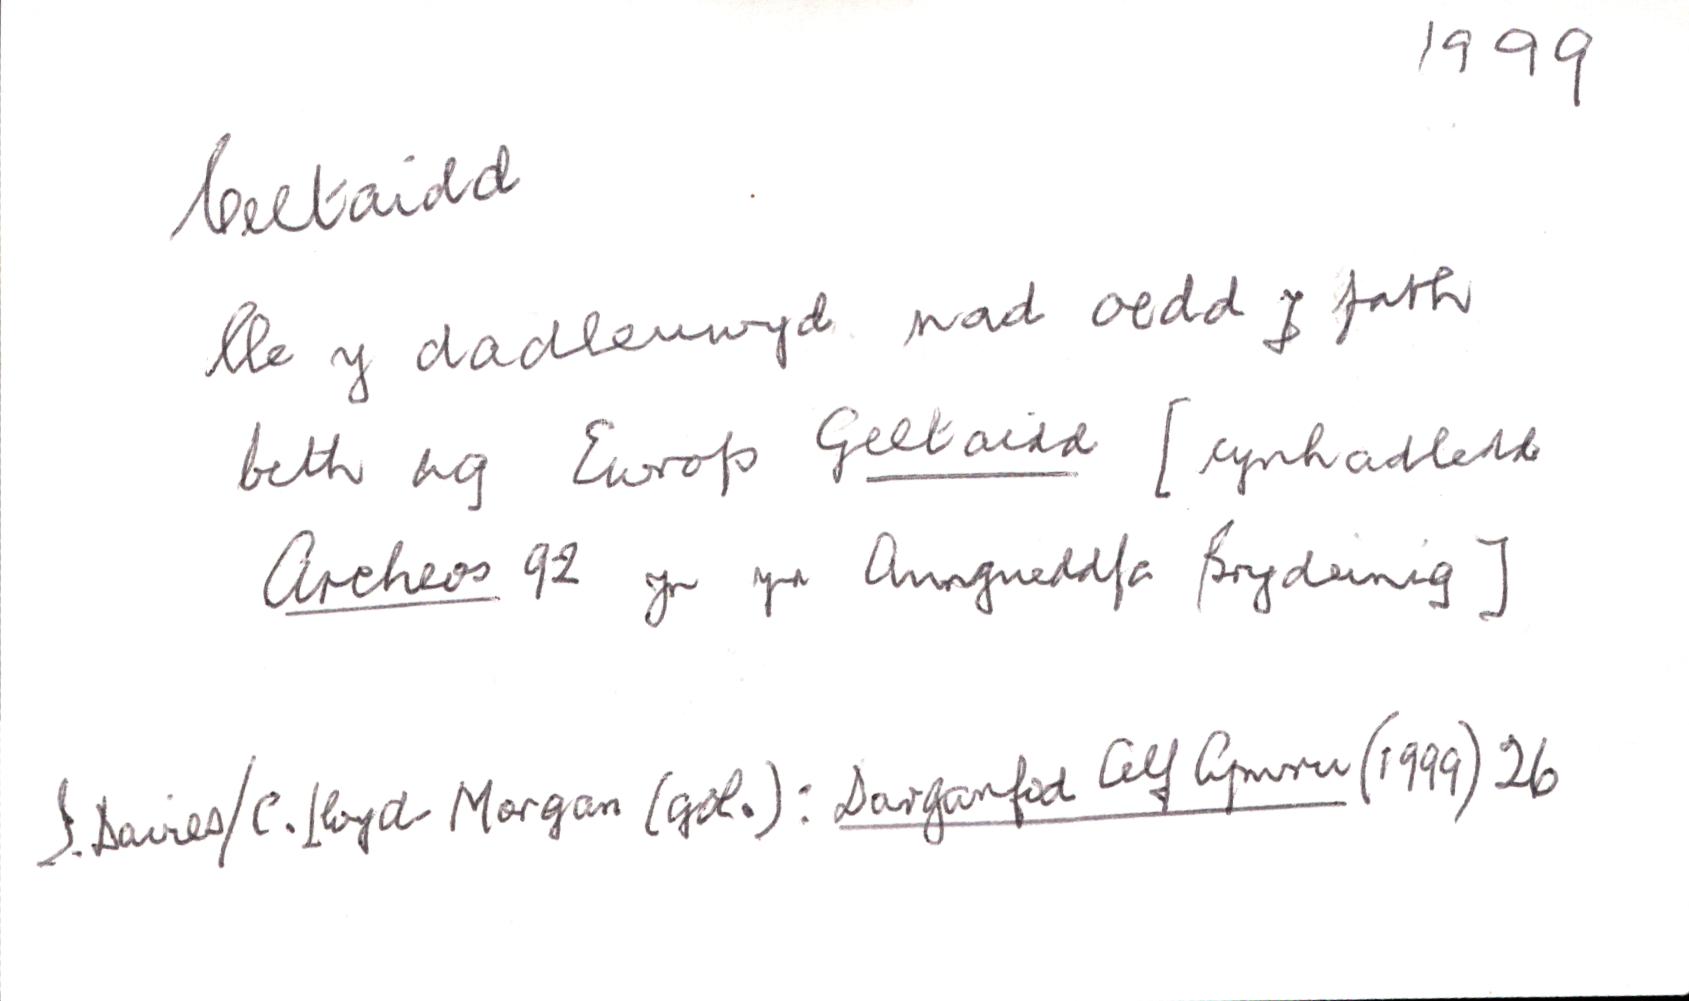 1999
Celtaidd
lle y dadleuwyd nad oedd y fath
beth ag Ewrop Geltaidd [cynhadledd
Archeos 92 yn yr Amgueddfa Brydeinig]
I. Davies/C. Lloyd Morgan (gol.): Darganfod Celf Cymru (1999) 26